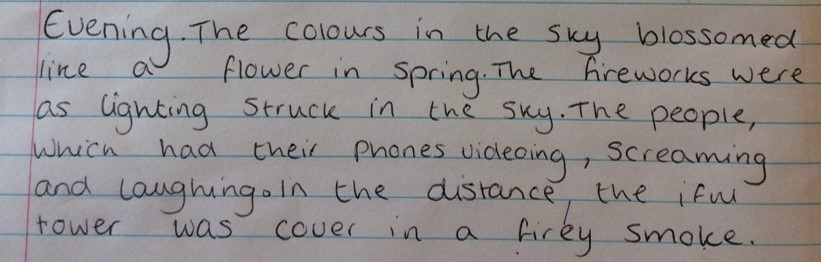 Evening. The colours in the sky blossomed
like a flower in spring. The fireworks were
as lighting struck in the sky. The people,
which had their phones videoing, screaming
and laughing. In the distance, the iful
tower was cover in a firey smoke.